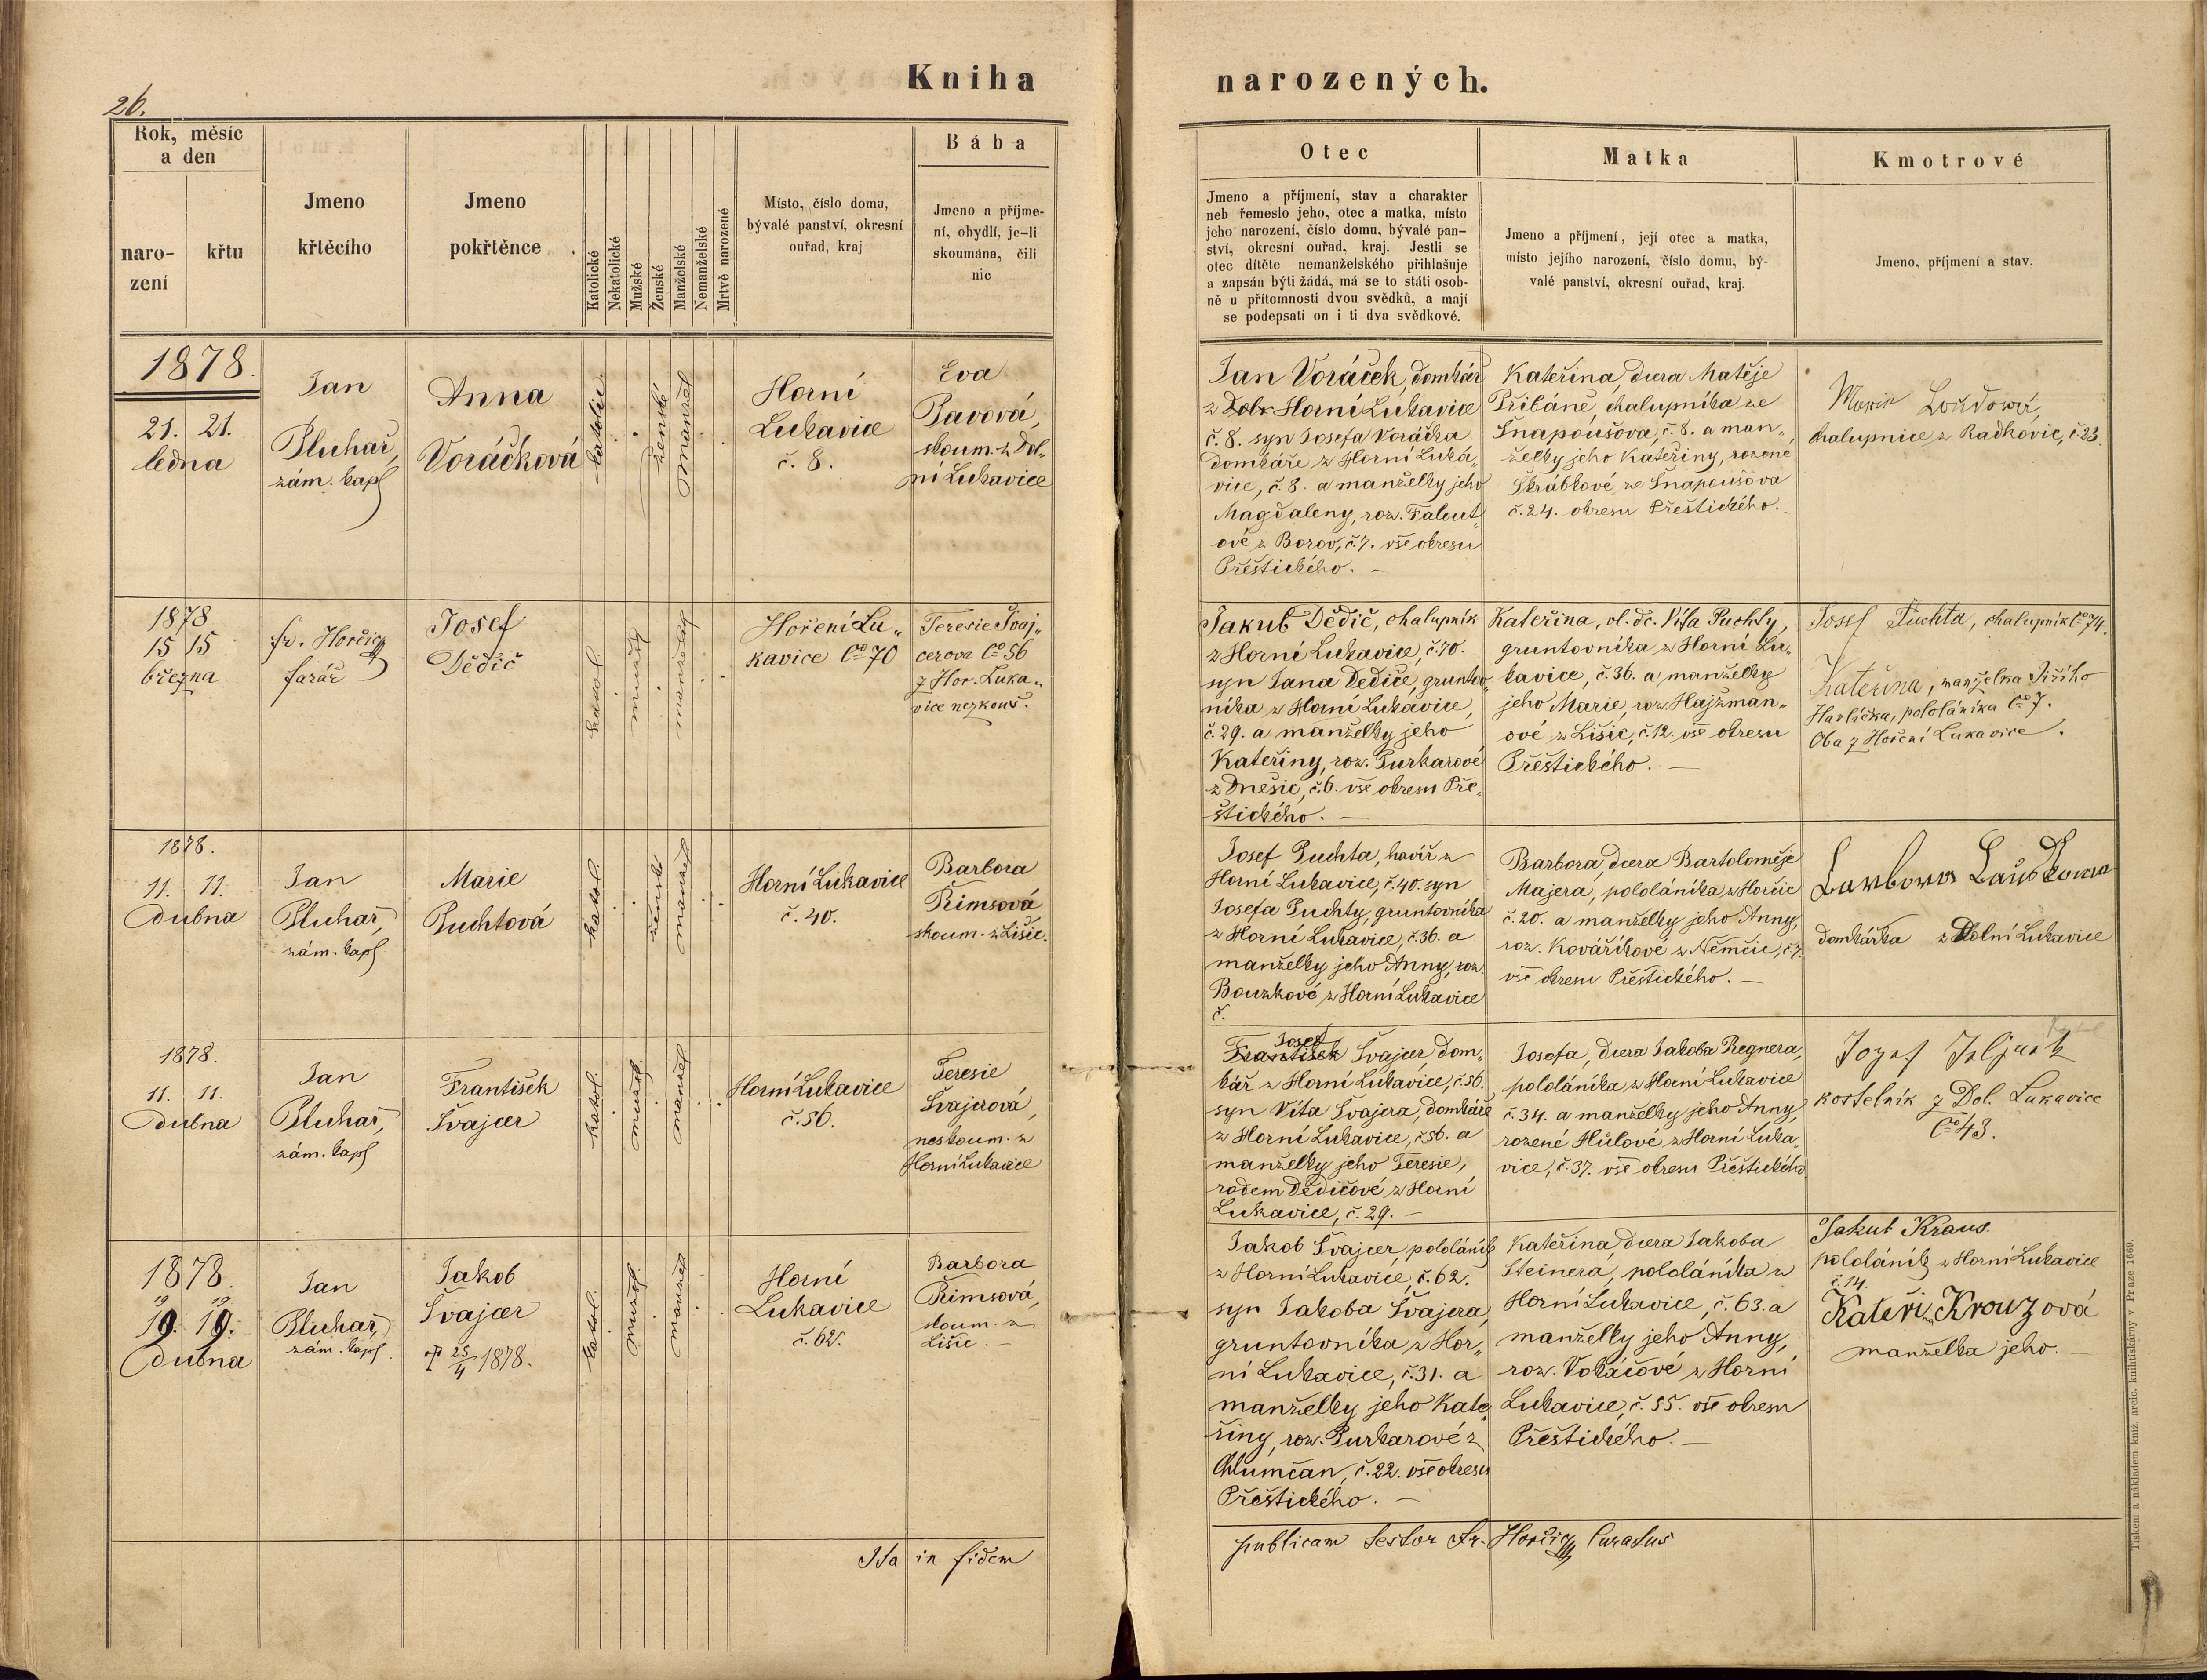 26.
Kniha narozených.
Rok, měsíc
a den
naro-
zení
křtu
Jmeno
křtěcího
Jmeno
pokřtěnce
Katolické
Nekatolické
Mužské
Ženské
Manželské
Nemanželské
Mrtvě narozené
Místo, číslo domu,
bývalé panství, okresní
ouřad, kraj
Bába
Jmeno a příjme-
ní, obydlí, je-li
skoumána, čili
nic
Otec
Jmeno a příjmení, stav a charakter
neb řemeslo jeho, otec a matka, místo
jeho narození, číslo domu, bývalé pan-
ství, okresní ouřad, kraj. Jestli se
otec dítěte nemanželského přihlašuje
a zapsán býti žádá, má se to státi osob-
ně u přítomnosti dvou svědků, a mají
se podepsati on i ti dva svědkové.
Matka
Jmeno a příjmení, její otec a matka,
místo jejího narození, číslo domu, bý-
valé panství, okresní ouřad, kraj.
Kmotrové
Jmeno, příjmení a stav.
1878.
21. 21.
ledna
Jan
Pluhař,
zám. kapl
Anna
Voráčková
katolic.
ženské
manžel
Horní
Lukavice
č. 8.
Eva
Pavová,
skoum. z Dol-
ní Lukavice
Jan Voráček, domkář
z Dol. Horní Lukavice
č. 8. syn Josefa Voráčka
domkáře z Horní Luka-
vice, č. 8. a manželky jeho
Magdaleny, roz. Falout-
ové z Borov, č. 7. vše okresu
Přeštického. –
Kateřina, dcera Matěje
Přibáně, chalupníka ze
Snapoušova, č. 8. a man-
želky jeho Kateřiny, rozené
Škrábkové ze Snapoušova
č. 24. okresu Přeštického. –
Marie
chalupnice z Radkovic, č. 23.
1878
15 15
března
fr. Horčic
farář
Josef
Dědič
katol.
mužs.
manželsk.
Hoření Lu-
kavice Čo 70
Teresie Švaj-
cerova Čo 56
z Hor. Luka-
vice nezkouš.
Jakub Dědič, chalupník
z Horní Lukavice, č. 70.
syn Jana Dědiče, grunto-
níka z Horní Lukavice,
č. 29. a manželky jeho
Kateřiny, roz. Purkarové
z Dnešic, č. 6. vše okresu Pře-
štického. –
Kateřina, vl. dc. Víta Puchty,
gruntovníka z Horní Lu-
kavice, č. 36. a manželky
jeho Marie, roz. Hajžman-
ové z Lišic, č. 12. vše okresu
Přeštického. –
Josef Puchta, chalupník Čo 74.
Kateřina, manželka Jiřího
Havlíčka, pololáníka Čo 7.
Oba z Hoření Lukavice.
1878.
11. 11.
dubna
Jan
Pluhař,
zám. kapl
Marie
Puchtová
katol.
ženské
manžel
Horní Lukavice
č. 40.
Barbora
Římsová
skoum. z Lišic.
Josef Puchta, havíř z
Horní Lukavice, č. 40. syn
Josefa Puchty, gruntovníka
z Horní Lukavice, č. 36. a
manželky jeho Anny, roz.
Bouzkové z Horní Lukavice
č.
Barbora, dcera Bartoloměje
Majera, pololáníka z Horčic
č. 20. a manželky jeho Anny,
roz. Kováříkové z Němčic, č. 7.
vše okresu Přeštického. –
domkářka z Dolní Lukavice
1878.
11. 11.
dubna
Jan
Pluhař,
zám. kapl
František
Švajcer
katol.
mužsk.
manžel
Horní Lukavice
č. 56.
Teresie
Švajcrová,
neskoum. z
Horní Lukavice
Josef
František Švajcer, dom-
kář z Horní Lukavice, č. 56.
syn Víta Švajcra, domkáře
z Horní Lukavice, č. 56. a
manželky jeho Teresie,
rodem Dědičové z Horní
Lukavice, č. 29. –
Josefa, dcera Jakoba Regnera,
pololáníka z Horní Lukavice
č. 34. a manželky jeho Anny,
rozené Hůlové z Horní Luka-
vice, č. 37. vše okresu Přeštického
Jozef
kostelník z Dol. Lukavice
Čo 43.
1878.
19 19
19. 19.
dubna
Jan
Pluhař,
zám. kapl.
Jakob
Švajcer
† 25/4 1878.
katol.
mužsk.
manžel
Horní
Lukavice
č. 62.
Barbora
Římsová,
skoum. z
Lišic. –
Jakob Švajcer, pololáník
z Horní Lukavice, č. 62.
syn Jakoba Švajcra,
gruntovníka z Hor-
ní Lukavice, č. 31. a
manželky jeho Kate-
řiny, roz. Purkarové z
Chlumčan, č. 22. vše okresu
Přeštického. –
Kateřina, dcera Jakoba
Steinera, pololáníka z
Horní Lukavice, č. 63. a
manželky jeho Anny,
roz. Vokáčové z Horní
Lukavice, č. 55. vše okresu
Přeštického. –
Jakub Kraus
pololáník z Horní Lukavice
č. 14.
Kateřina Krouzová
manželka jeho. –
Ita in fidem publicam testor Fr. Horčic Curatus
Tiskem a nákladem kníž. arcib. knihtiskárny v Praze 1669.